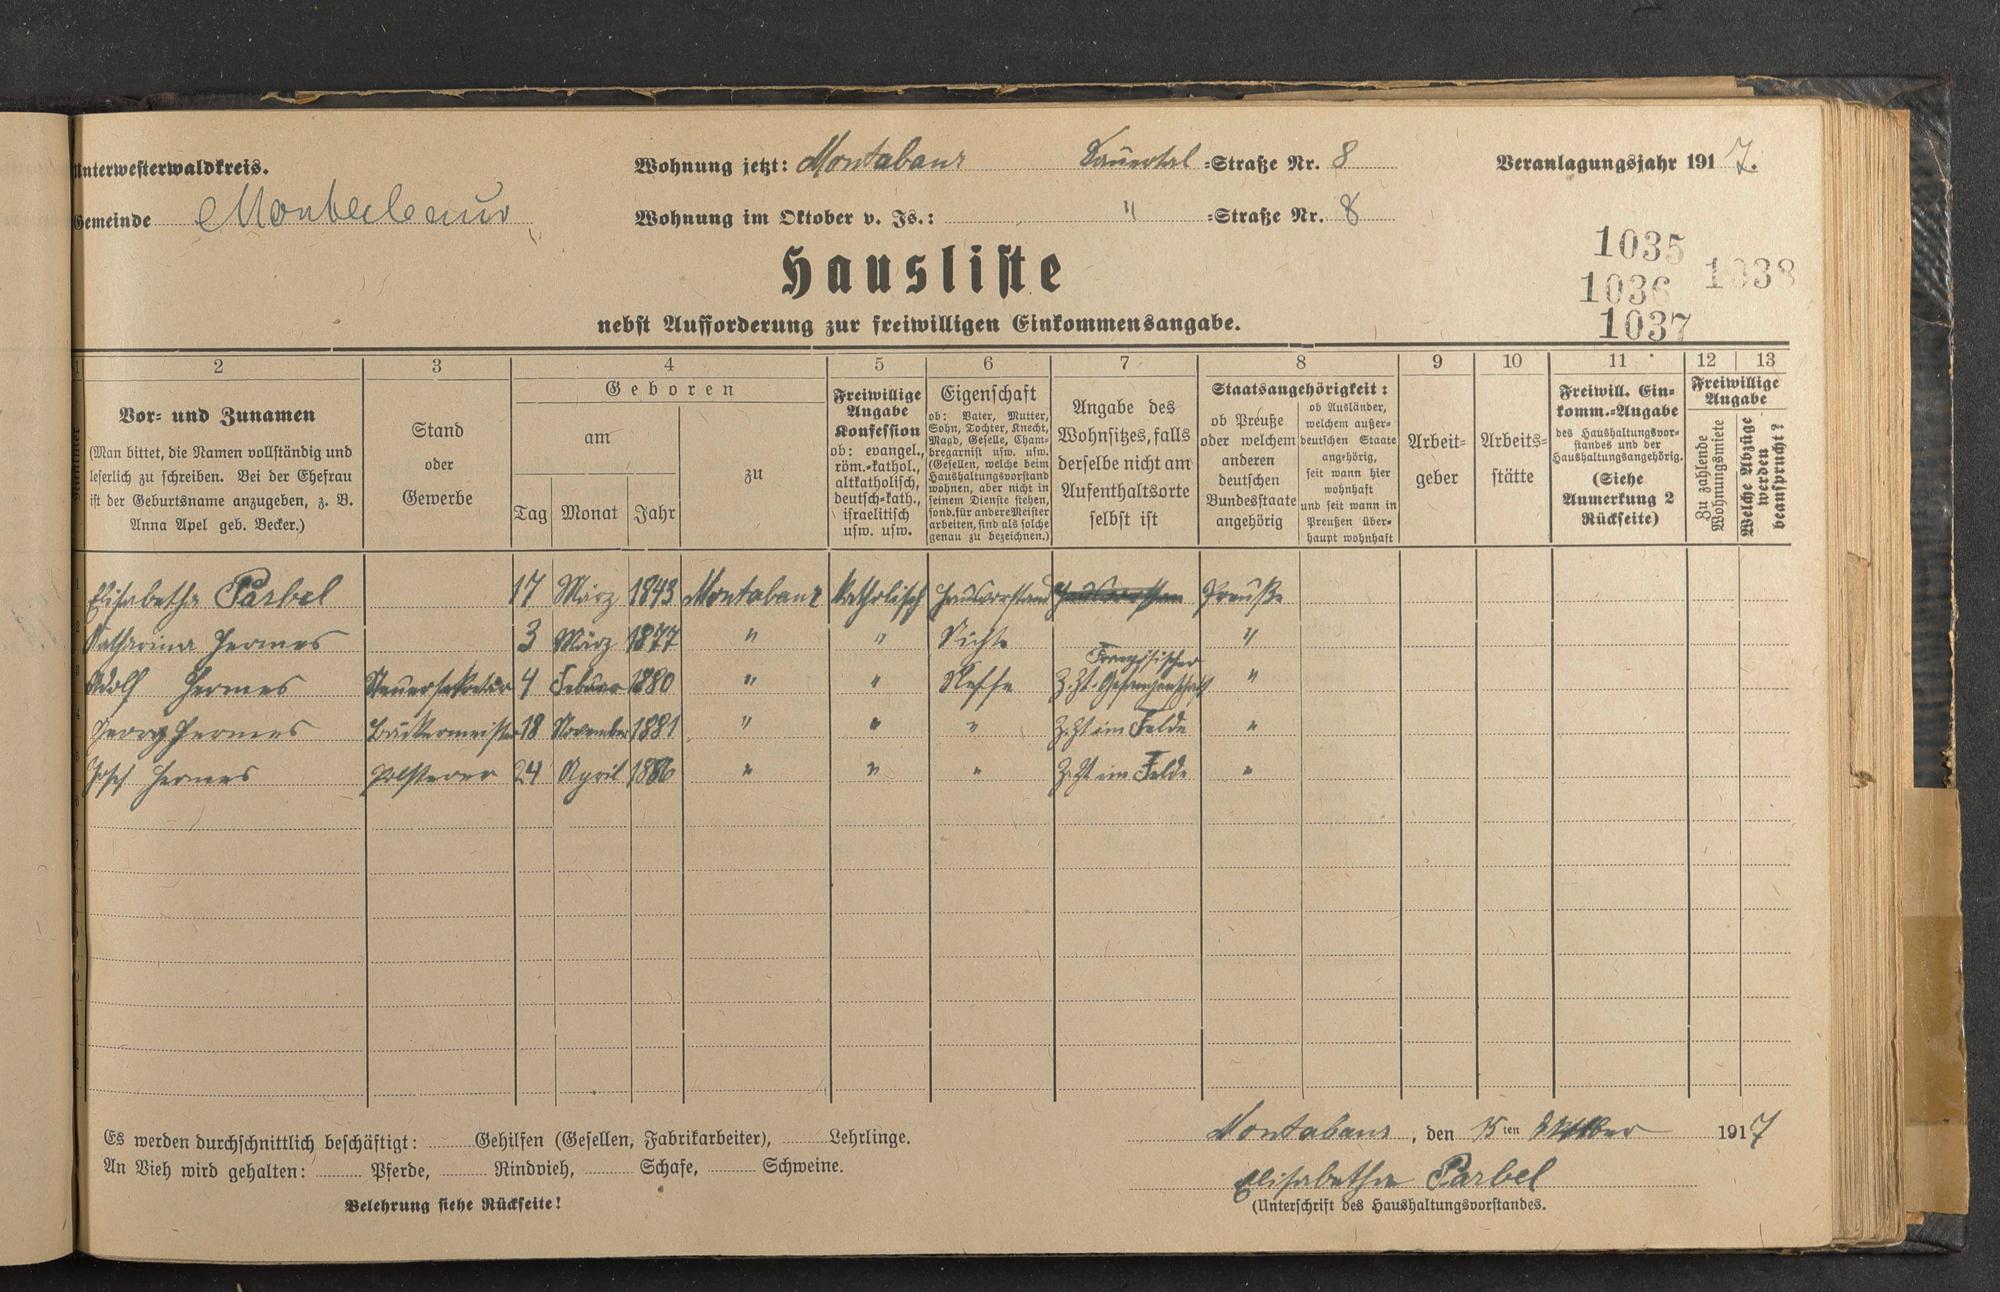 Unterwesterwaldkreis.
Gemeinde Montabaur
Wohnung jetzt: Montabaur Sauertal =Straße Nr. 8
Wohnung im Oktober v. Js.: " =Straße Nr. 8
Veranlagungsjahr 1917.
1035
1036 1038
1037
Hausliste
nebst Aufforderung zur freiwilligen Einkommensangabe.
1 2 3 4 5 6 7 8 9 10 11 12 13
Nummer
Vor= und Zunamen
(Man bittet, die Namen vollständig und
leserlich zu schreiben. Bei der Ehefrau
ist der Geburtsname anzugeben, z. B.
Anna Apel geb. Becker.)
Stand
oder
Gewerbe
Geboren
am
Tag Monat Jahr
zu
Freiwillige
Angabe
Konfession
ob: evangel.,
röm.=kathol.,
altkatholisch,
deutsch=kath.,
israelitisch
usw. usw.
Eigenschaft
ob: Vater, Mutter,
Sohn, Tochter, Knecht,
Magd, Geselle, Cham=
bregarnist usw. usw.
(Gesellen, welche beim
Haushaltungsvorstand
wohnen, aber nicht in
seinem Dienste stehen,
sond. für andere Meister
arbeiten, sind als solche
genau zu bezeichnen.)
Angabe des
Wohnsitzes, falls
derselbe nicht am
Aufenthaltsorte
selbst ist
Staatsangehörigkeit:
ob Preuße
oder welchem
anderen
deutschen
Bundesstaate
angehörig
ob Ausländer,
welchem außer=
deutschen Staate
angehörig,
seit wann hier
wohnhaft
und seit wann in
Preußen über=
haupt wohnhaft
Arbeit=
geber
Arbeits=
stätte
Freiwill. Ein=
komm.=Angabe
des Haushaltungsvor=
standes und der
Haushaltungsangehörig.
(Siehe
Anmerkung 2
Rückseite)
Freiwillige
Angabe
Zu zahlende
Wohnungsmiete
Welche Abzüge
werden
beansprucht?
1 Elisabetha Parbel 17 März 1843 Montabaur Katholisch Hausvorstand Hausvorstan Preuße
2 Katharina Hermes 3 März 1877 " " Nichte "
3 Adolf Hermes Steuersekretär 4 Februar 1880 " " Neffe Z. Zt. Französischer Gefangenschaft "
4 Georg Hermes Bäckermeister 18 November 1881 " " " Z. Zt im Felde "
5 Josef Hermes Polsterer 24 April 1886 " " " Z. Zt im Felde "
Es werden durchschnittlich beschäftigt: Gehilfen (Gesellen, Fabrikarbeiter), Lehrlinge.
An Vieh wird gehalten: Pferde, Rindvieh, Schafe, Schweine.
Belehrung siehe Rückseite!
Montabaur, den 15ten Oktober 1917
Elisabetha Parbel
(Unterschrift des Haushaltungsvorstandes.